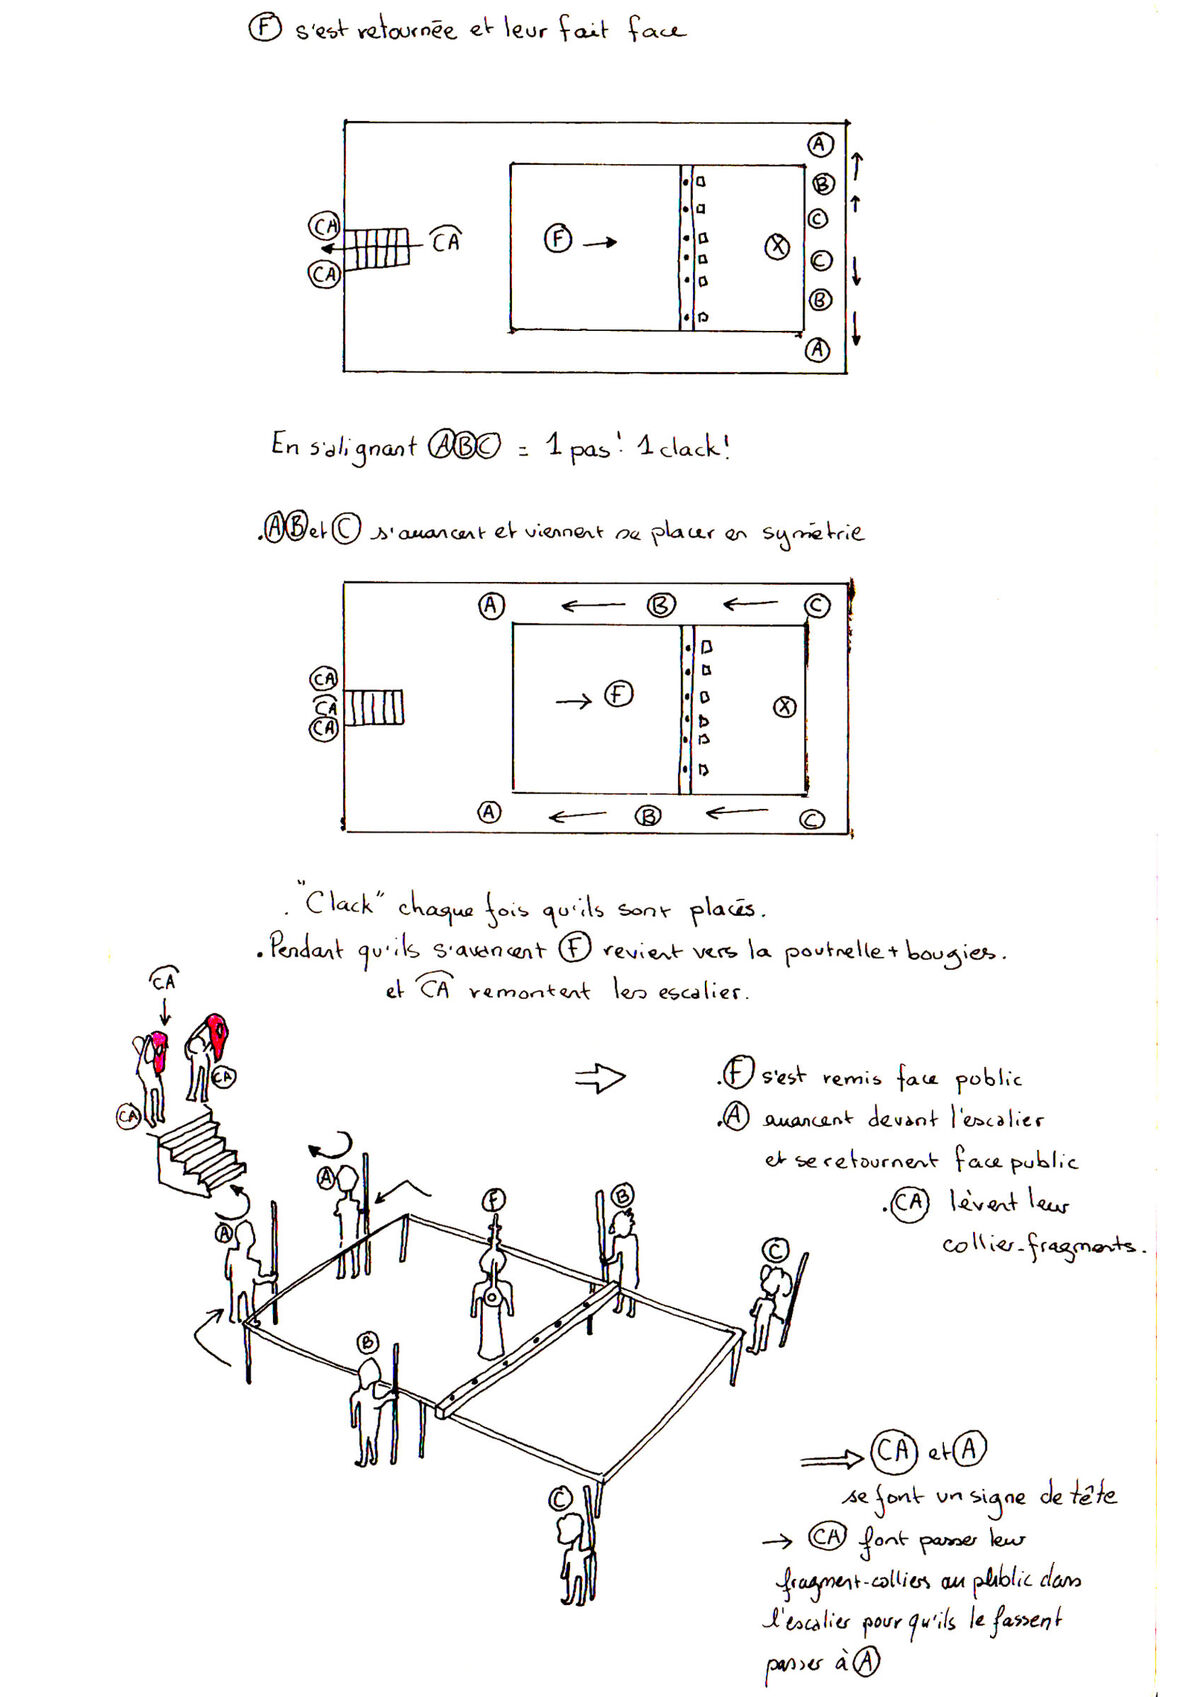 F s'est retournée et leur fait face
A
B
CA
C
CA
F
X
C
CA
B
A
En s'alignant ABC = 1 pas! 1 clack!
.AB et C s'avancent et viennent se placer en symétrie
A
B
C
CA
F
CA
X
CA
A
B
C
. "Clack" chaque fois qu'ils sont placés.
. Pendant qu'ils s'avancent F revient vers la poutrelle + bougies.
et CA remontent les escalier.
CA
CA
CA
⇒ .F s'est remis face public
.A avancent devant l'escalier
et se retournent face public
.CA lèvent leur
collier-fragments.
A
F
B
A
C
B
C
⇒ CA et A
se font un signe de tête
→ CA font passer leur
fragment-colliers au public dans
l'escalier pour qu'ils le fassent
passer à A